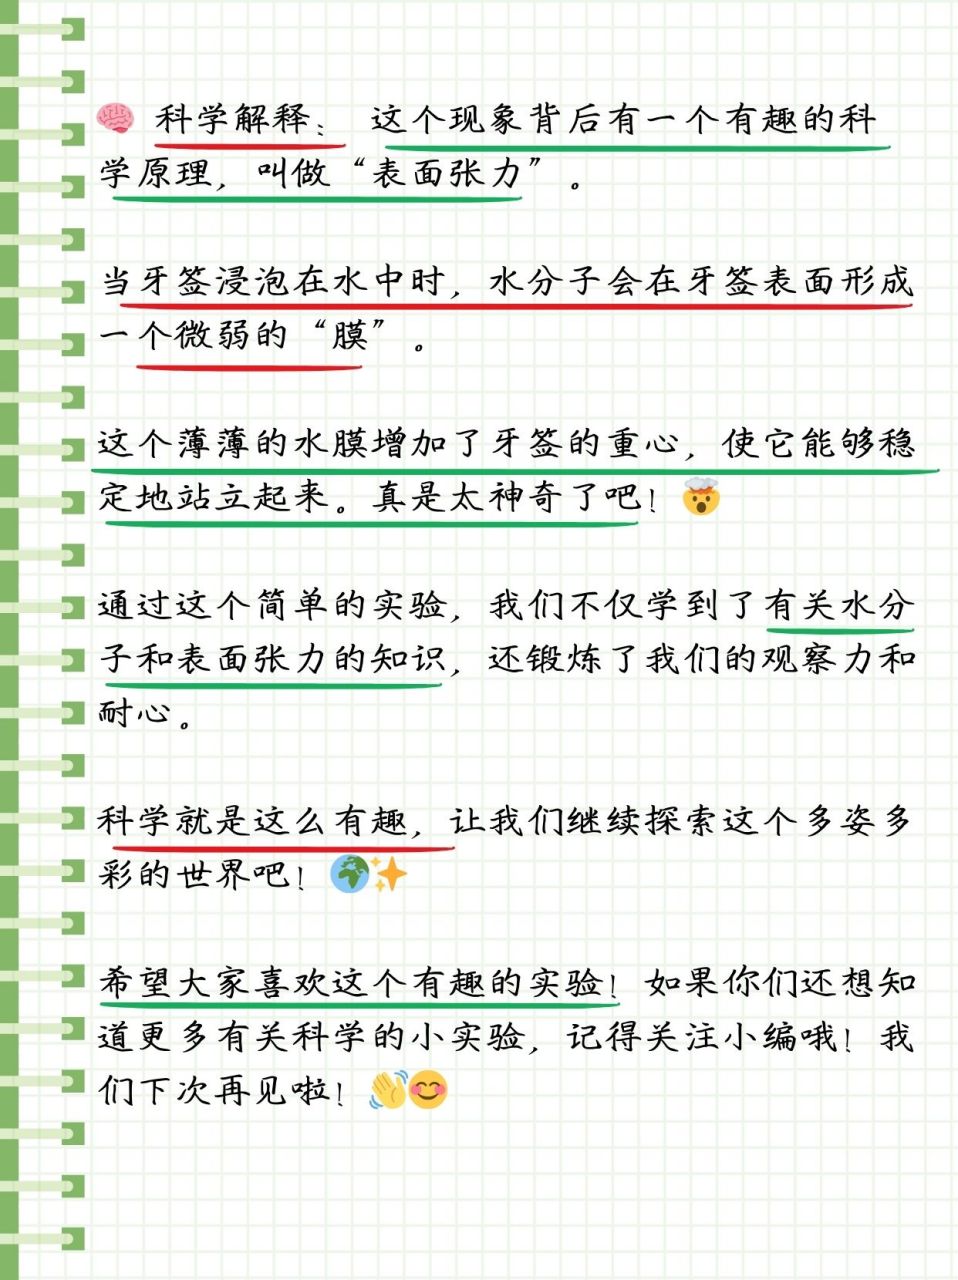 🧠 科学解释： 这个现象背后有一个有趣的科
学原理，叫做“表面张力”。
当牙签浸泡在水中时，水分子会在牙签表面形成
一个微弱的“膜”。
这个薄薄的水膜增加了牙签的重心，使它能够稳
定地站立起来。真是太神奇了吧！🤯
通过这个简单的实验，我们不仅学到了有关水分
子和表面张力的知识，还锻炼了我们的观察力和
耐心。
科学就是这么有趣，让我们继续探索这个多姿多
彩的世界吧！🌍✨
希望大家喜欢这个有趣的实验！如果你们还想知
道更多有关科学的小实验，记得关注小编哦！我
们下次再见啦！👋😊